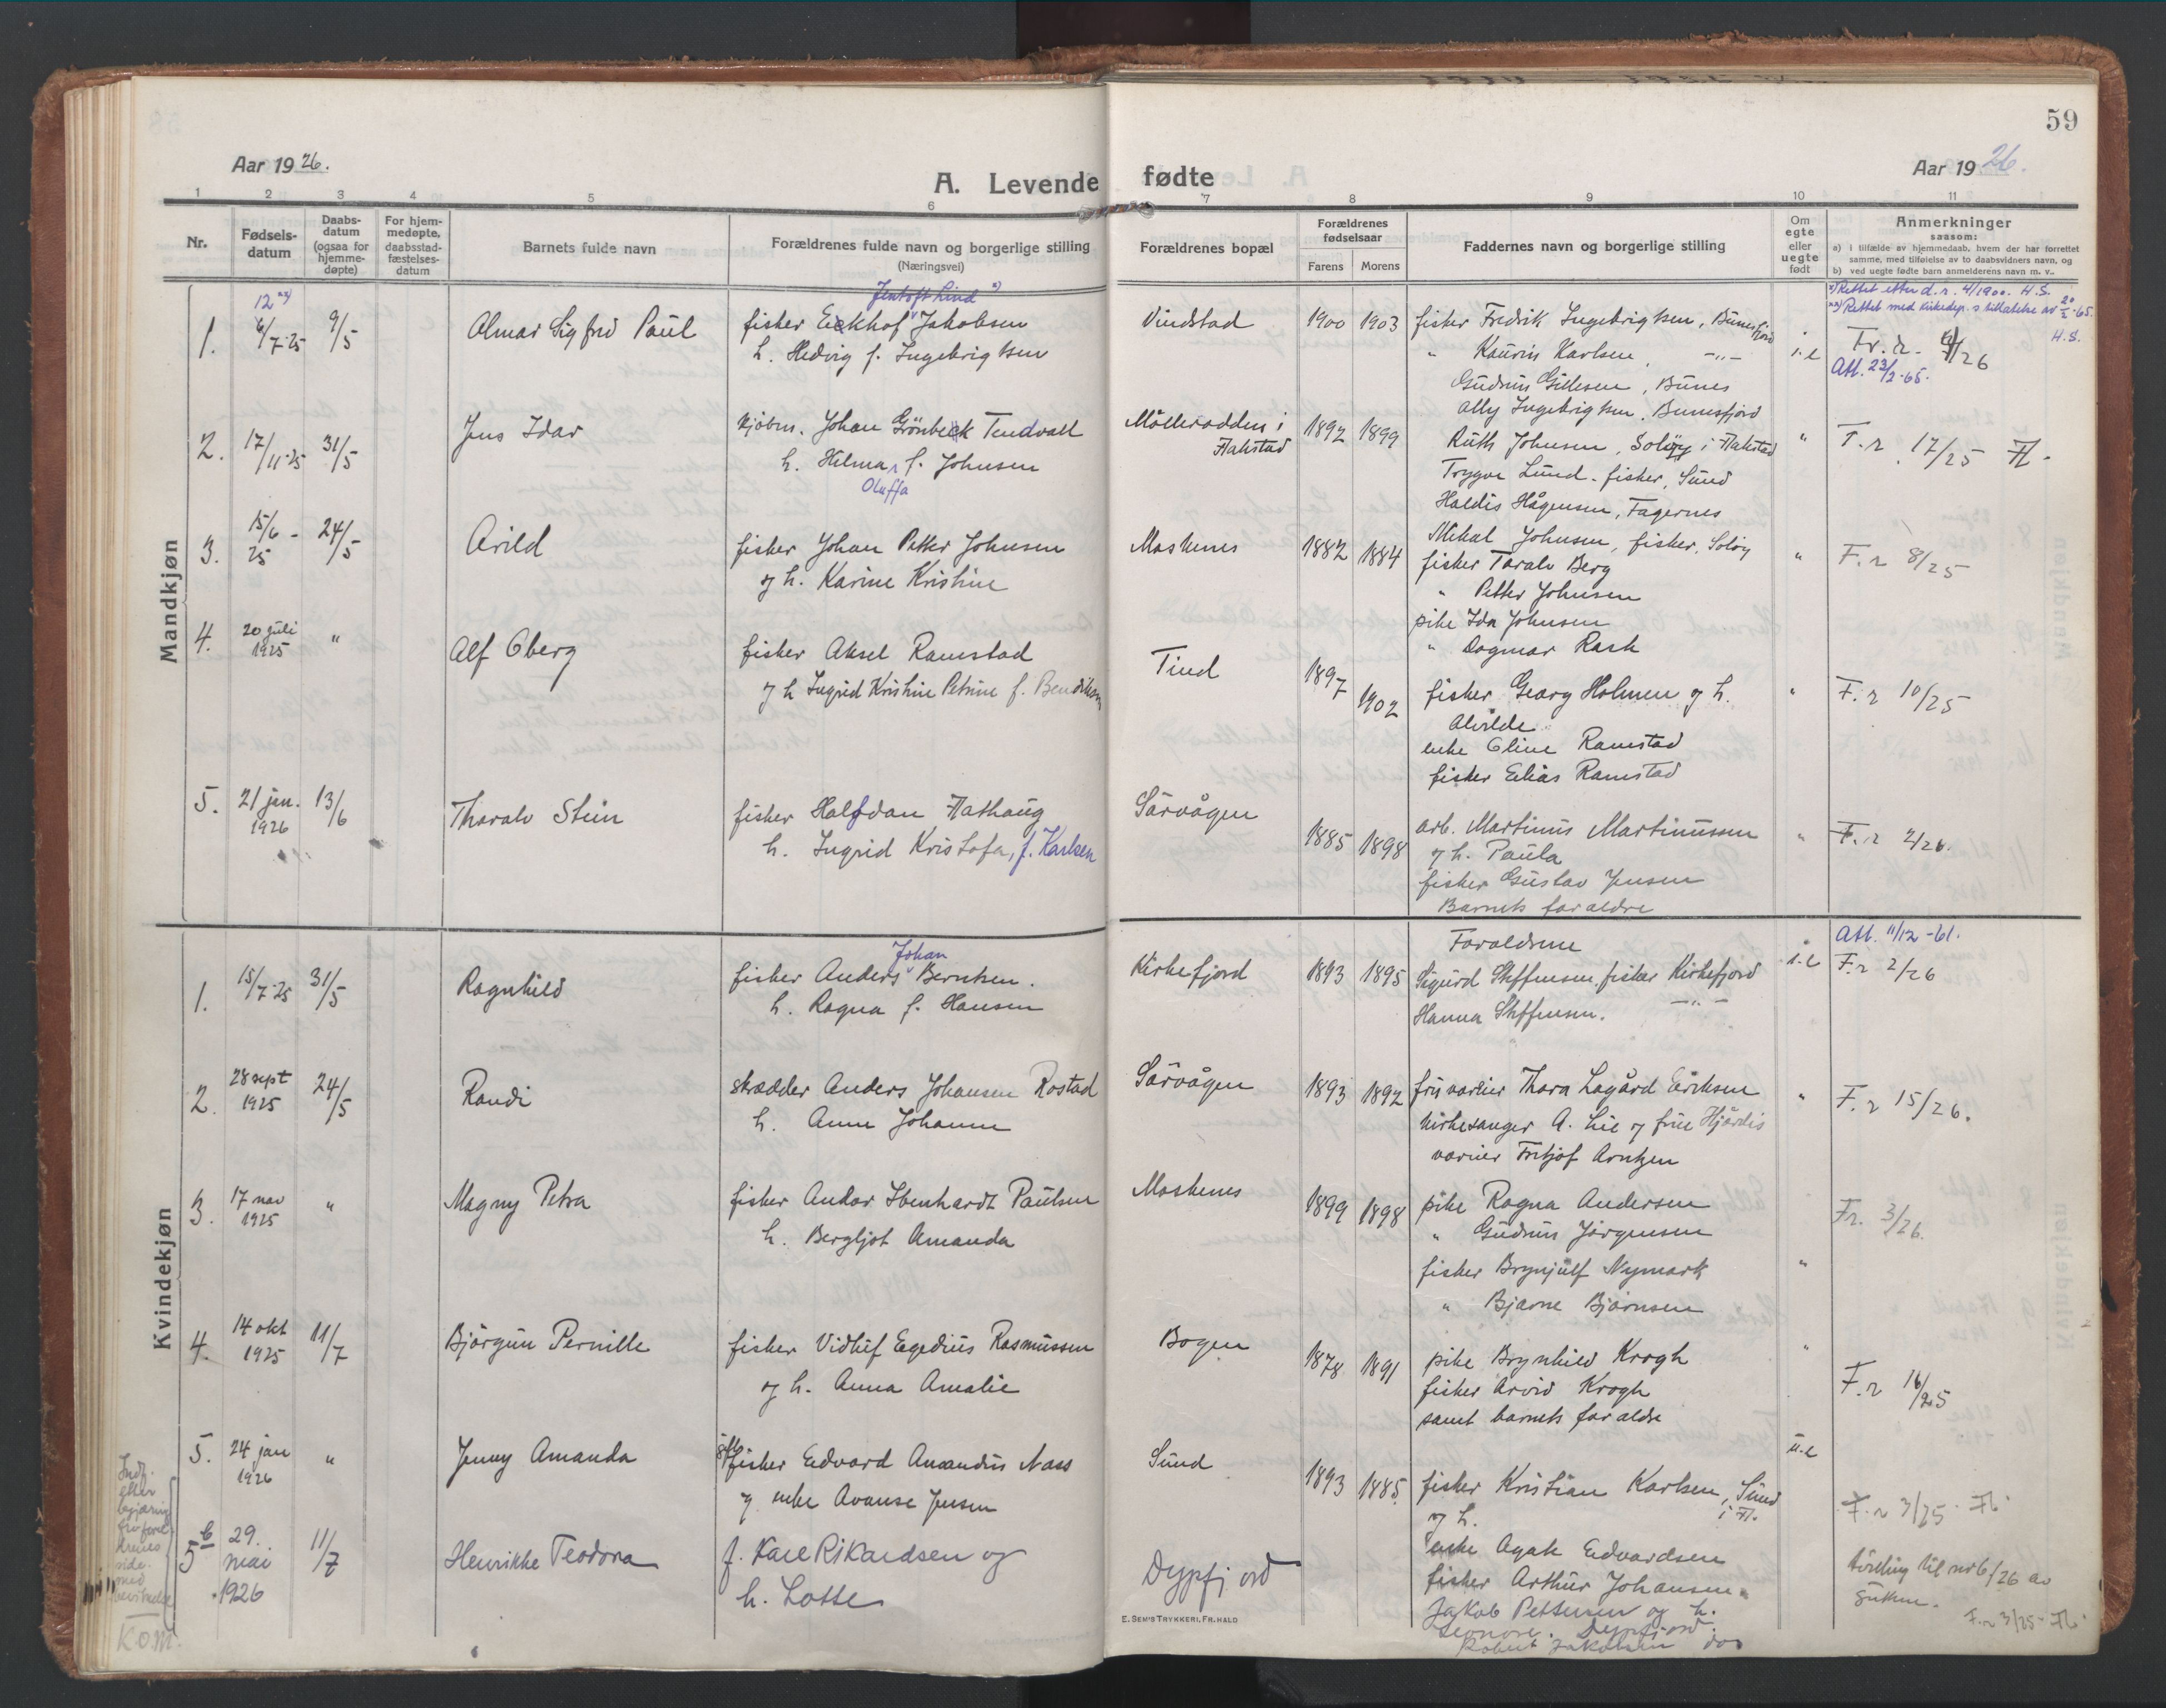 59
Aar 1926.
A. Levende fødte
Aar 1926.
1 2 3 4 5 6 7 8 9 10 11
Nr.
Fødsels-
datum
Daabs-
datum
(ogsaa for
hjemme-
døpte)
For hjem-
medøpte,
daabsstad-
fæstelses-
datum
Barnets fulde navn
Forældrenes fulde navn og borgerlige stilling
(Næringsvei)
Forældrenes bopæl
Forældrenes
fødselsaar
Farens
Morens
Faddernes navn og borgerlige stilling
Om
egte
eller
uegte
født
Anmerkninger
saasom:
a) i tilfælde av hjemmedaab, hvem der har forrettet
samme, med tilføielse av to daabsvidners navn, og
b) ved uegte fødte barn anmelderens navn m. v..
Mandkjøn
12 xx)
1. 6/7-25 9/5
Almar Sigfrid Paul
Jentoft Lind x)
fisker Eickhof Jakobsen
h. Hedvig f. Ingebrigtsen
Vindstad
1900 1903
fisker Fredrik Ingebrigtsen, Bunesfjord
" Kaurin Karlsen -"-
Gudrun Gillesen, Bunes
Ally Ingebrigtsen, Bunesfjord
i.e
x) Rettet etter d.r. 4/1900. H.S.
xx) Rettet med Kirkedep.s tillatelse av 20/2-65.
H.S.
Att. 23/2-65.
2. 17/11-25 31/5
Jens Idar
kjøbm. Johan Grönbeck Tendvall
h. Hilma f. Johnsen
Oluffa
Möllerodden i
Flakstad
1892 1899
Ruth Johnsen, Solöy i Flakstad
Trygve Lund. fisker, Sund
Haldis Hågensen, Fagernes
Mikal Johnsen, fisker, Solöy
"
F.r 17/25 Fl.
3. 15/6-25 24/5
Arild
fisker Johan Petter Johnsen
og h. Karine Kristine
Moskenes
1882 1884
fisker Toralv Berg
" Petter Johnsen
pike Ida Johnsen
" Dagmar Rask
"
F.r 8/25
4. 20 juli
1925 "
Alf Oberg
fisker Aksel Ramstad
og h Ingrid Kristine Petrine f. Bendiksen
Tind
1897 1902
fisker Georg Holmen og h.
Alvilde
enke Oline Ramstad
fisker Elias Ramstad
"
F.r 10/25
5. 21 jan.
1926 13/6
Tharalv Stein
fisker Halfdan Hathaug
h. Ingrid Kristofa, f. Karlsen
Sörvågen
1885 1898
arb. Martinus Martinussen
og h. Paula
fisker Gustav Jensen
Barnets foraldre
"
F.r 2/26.
Kvindekjøn
1. 15/7-25 31/5
Ragnhild
Johan
fisker Anders Berntsen.
h. Ragna f. Hansen
Kirkefjord
1893 1895
Foraldrene
Sigurd Steffensen, fisker Kirkefjord
Hanna Steffensen. -"-
i.e
Att. 11/12-61.
F.r 2/26
2. 28 sept
1925 24/5
Randi
skrædder Anders Johansen Rostad
h. Anne Johanne
Sörvågen
1893 1892
fru varier Thora Lagård Eriksen
kirkesanger A. Lie og frue Hjördis
varier Fritjof Arntzen
"
F.r 15/26.
3. 17 nov
1925 "
Magny Petra
fisker Andor Ibenhardt Paulsen
h. Bergljot Amanda
Moskenes
1899 1898
pike Ragna Andersen
" Gudrun Jörgensen
fisker Brynjulf Nymark
" Bjarne Bjørnsen
"
Fr. 3/26.
4. 14 okt
1925 11/7
Björgun Pernille
fisker Vidlief Egedius Rasmussen
og h. Anna Amalie
Bogen
1878 1891
pike Brynhild Krogh
fisker Arvid Krogh
samt barnets foraldre
"
F.r 16/25
5. 24 jan
1926 "
Jenny Amanda
fisker Edvard Amandus Nass
og enke Avanse Jensen
Sund
1893 1885
fisker Kristian Karlsen, Sund
og h. i Fl.
enke Agate Edvardsen
fisker Arthur Johansen
u.e
F.r 3/25. Fl.
5 b 29.
mai
1926 11/7
Henrikke Teodora
f. Kare Rikardsen og
h. Lotte
Dypfjord
Jakob Pettersen og h.
Leonore. Dypfjord.
Robert Jakobsen do
tvilling til nr 6/26 av
F.r 3/25 - Fl.
Indf.
efter
begjæring
fra forel-
drenes
side.
med
Kom.
E. SEM'S TRYKKERI, FR.HALD